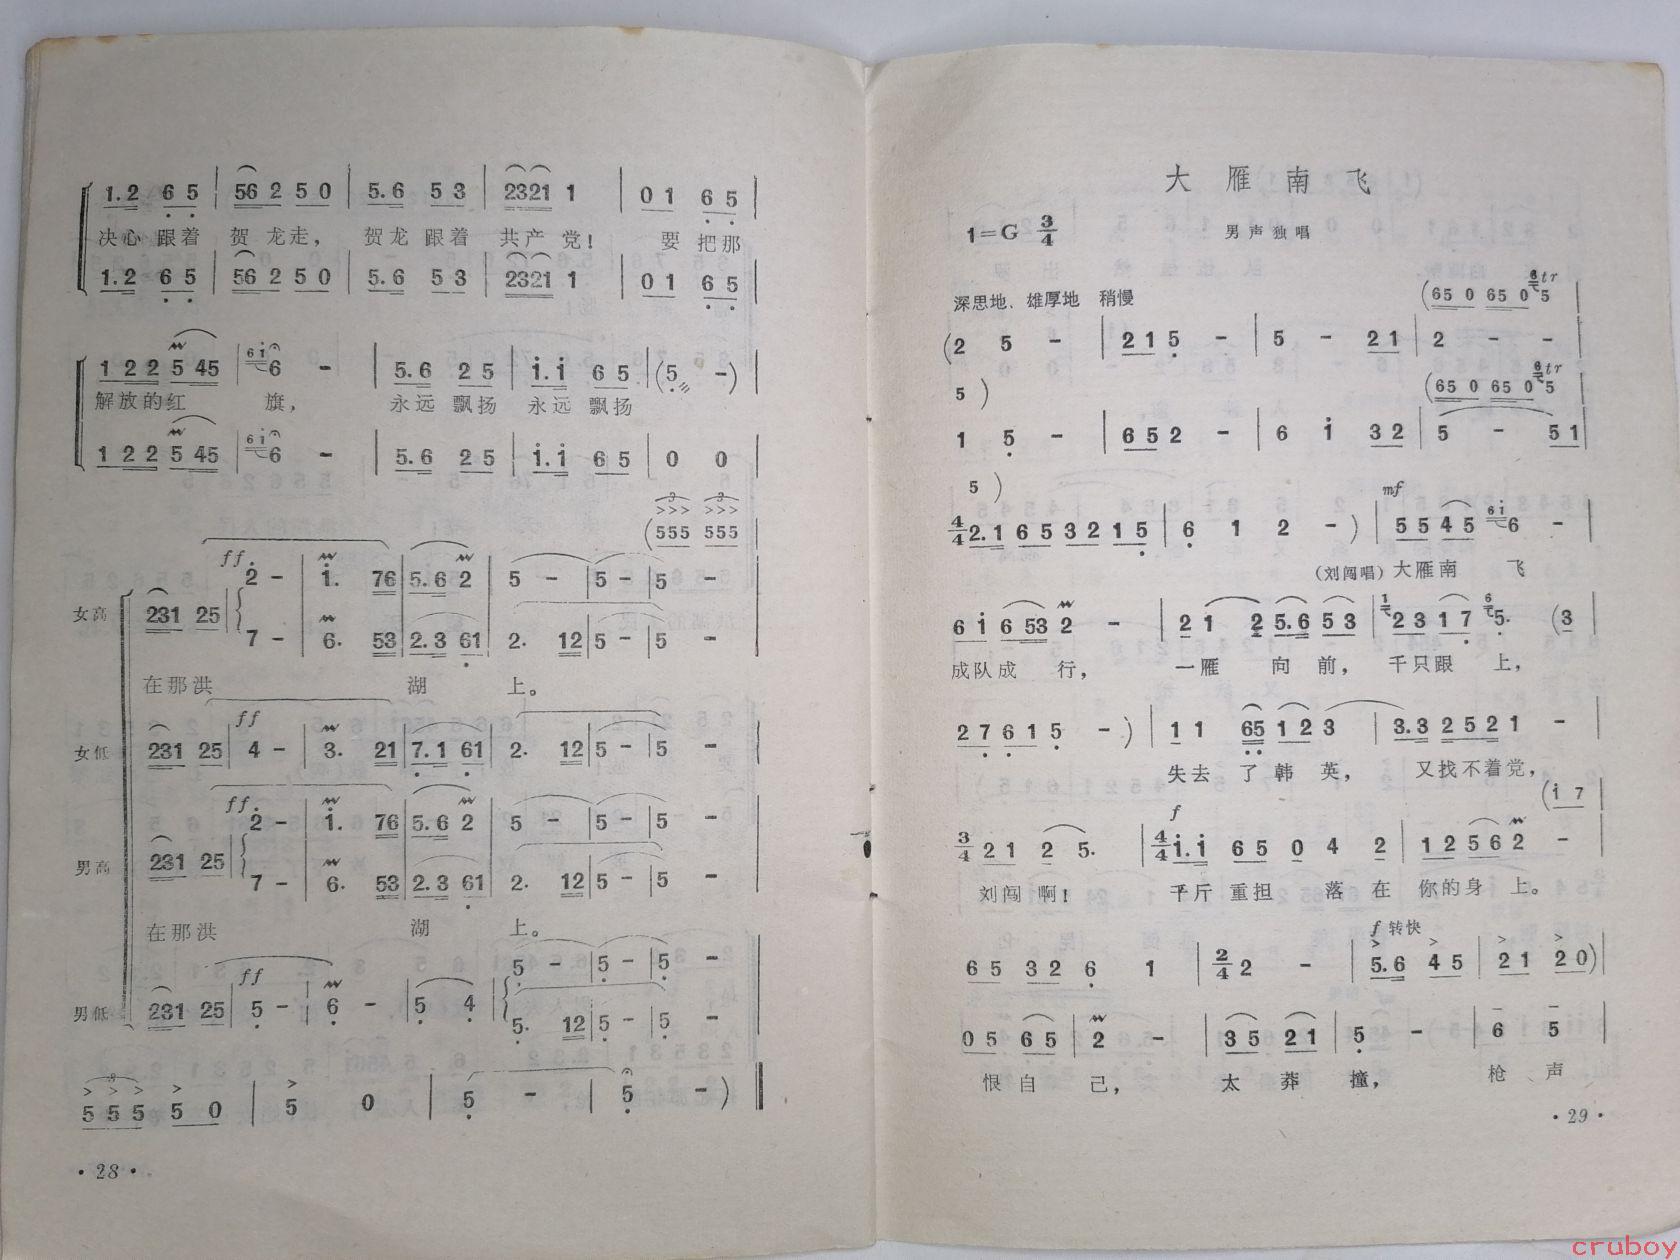 1.2 6 5 | 56 2 5 0 | 5.6 5 3 | 2321 1 | 0 1 6 5 |
决心 跟着 贺 龙走， 贺龙 跟着 共产 党！ 要 把那
1.2 6 5 | 56 2 5 0 | 5.6 5 3 | 2321 1 | 0 1 6 5 |
1 2 2 5 45 | 6i 6 - | 5.6 2 5 | i.i 6 5 | (5 -) |
解放的红 旗， 永远 飘扬 永远 飘扬
1 2 2 5 45 | 6i 6 - | 5.6 2 5 | i.i 6 5 | 0 0 |
3 3
(555 555
ff
2 - | i. 76 | 5.6 2 | 5 - | 5 - | 5 - |
女高 231 25
7 - | 6. 53 | 2.3 61 | 2. 12 | 5 - | 5 - |
在那洪 湖 上。
ff
女低 231 25 | 4 - | 3. 21 | 7.1 61 | 2. 12 | 5 - | 5 - |
ff
2 - | i. 76 | 5.6 2 | 5 - | 5 - | 5 - |
男高 231 25
7 - | 6. 53 | 2.3 61 | 2. 12 | 5 - | 5 - |
在那洪 湖 上。
ff
5 - | 5 - | 5 - |
男低 231 25 | 5 - | 6 - | 5 4 |
5. 12 | 5 - | 5 - |
3
5 5 5 5 0 | 5 0 | 5 - | 5 - ) |
·28·
大雁南飞
1=G 3/4 男声独唱
深思地、雄厚地 稍慢 (65 0 65 0 6 5 tr
(2 5 - | 2 1 5 - | 5 - 2 1 | 2 - - |
5 ) (65 0 65 0 6 5 tr
1 5 - | 6 5 2 - | 6 i 3 2 | 5 - 5 1 |
5 ) mf
4/4 2.1 6 5 3 2 1 5 | 6 1 2 - ) | 5 5 4 5 6i 6 - |
(刘闯唱) 大雁南 飞
6 i 6 53 2 - | 2 1 2 5.6 5 3 | 1 2 3 1 7 6 5. (3 |
成队成 行， 一雁 向 前， 千只跟 上，
2 7 6 1 5 - ) | 1 1 65 1 2 3 | 3.3 2 5 2 1 - |
失去 了 韩 英， 又找不着党，
f (i 7
3/4 2 1 2 5. | 4/4 i.i 6 5 0 4 2 | 1 2 5 6 2 - |
刘闯 啊！ 千斤 重担 落 在 你的身 上。
f 转快
6 5 3 2 6 1 | 2/4 2 - | 5.6 4 5 | 2 1 2 0) |
0 5 6 5 | 2 - | 3 5 2 1 | 5 - | 6 5 |
恨自 己， 太 莽 撞， 枪 声
·29·
cruboy